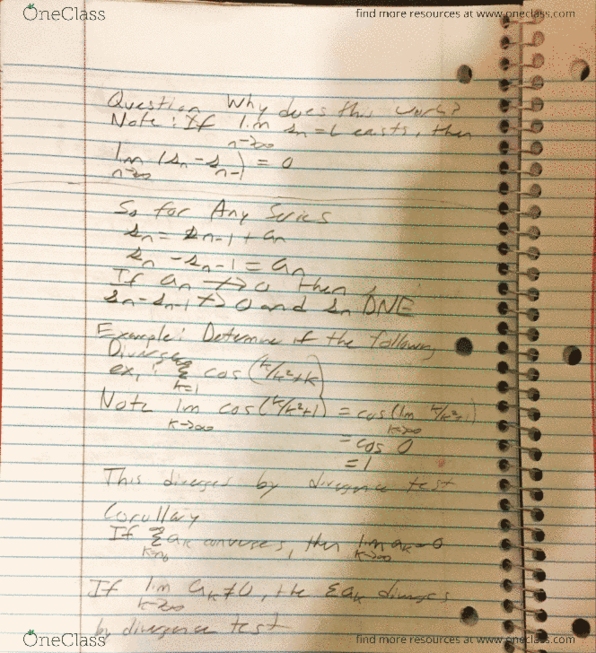 OneClass
find more resources at www.oneclass.com
Question Why does this work?
Note: If lim sn = L exists, then
n→∞
lim (sn - sn-1) = 0
n→∞
So for Any Series
sn = sn-1 + an
sn - sn-1 = an
If an ↛ 0 then,
sn - sn-1 ↛ 0 and sn DNE
Example: Determine if the following
Diverges
ex: Σ cos(k/k²+k)
k=1
Note lim cos(k/k²+1) = cos(lim k/k²+1)
k→∞ k→∞
= cos 0
= 1
This diverges by divergence test
Corollary
If Σak converges, then lim ak = 0
k→∞
If lim ak ≠ 0, the Σak diverges
k→∞
by divergence test
OneClass
find more resources at www.oneclass.com